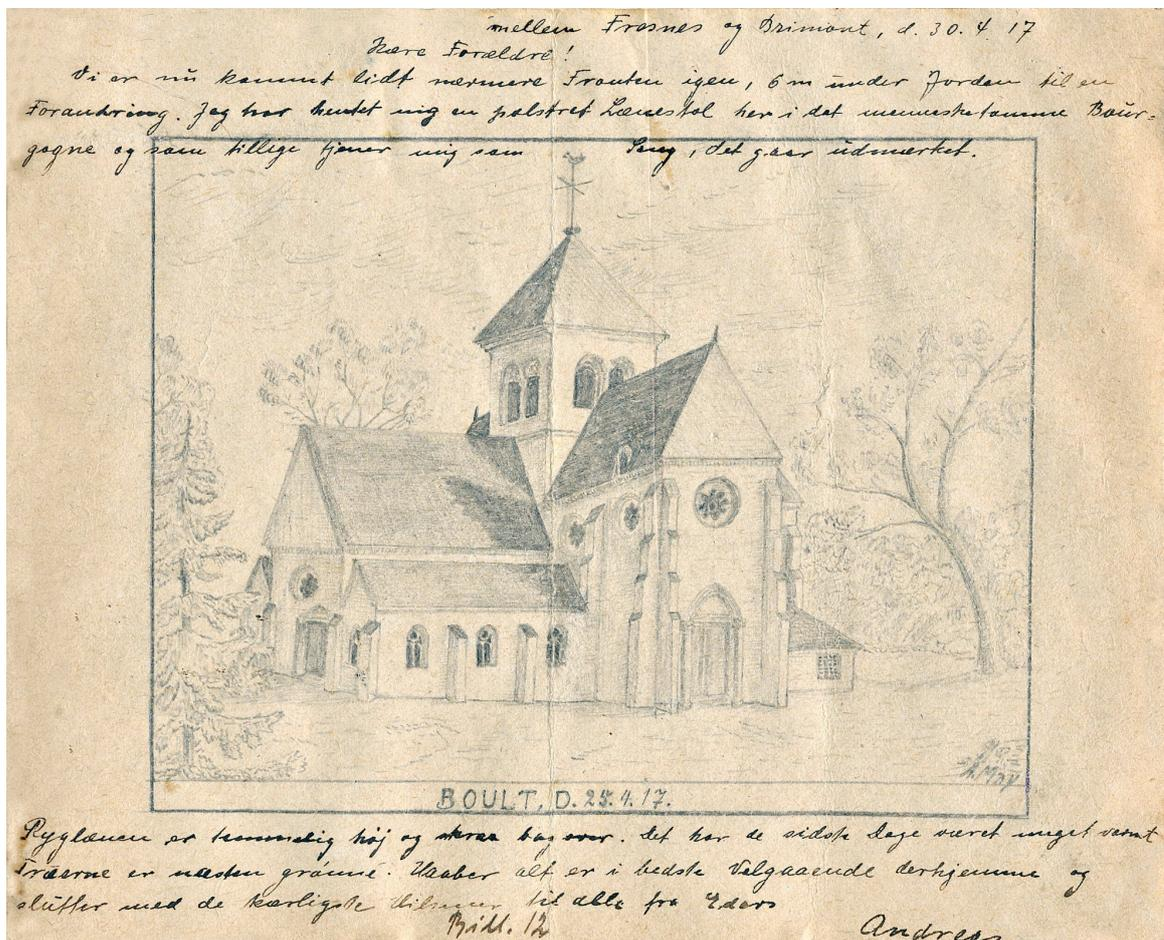 mellem Fresnes og Brimont, d. 30. 4. 17
Kære Forældre!
Vi er nu kommt lidt nærmere Fronten igen, 6 m under Jorden til en
Forandring. Jeg har hentet mig en polstret Lænestol her i det mennesketomme Bour-
gogne og som tillige tjener mig som Seng, det gaar udmærket.
BOULT, D. 25.4.17.
A. May
Ryglænen er temmelig høj og skraa bagover. Det har de sidste Dage været meget varmt
Træerne er næsten grønne. Haaber alt er i bedste Velgaaende derhjemme og
slutter med de kærligste Hilsner til alle fra Eders
Bill. 12
Andreas